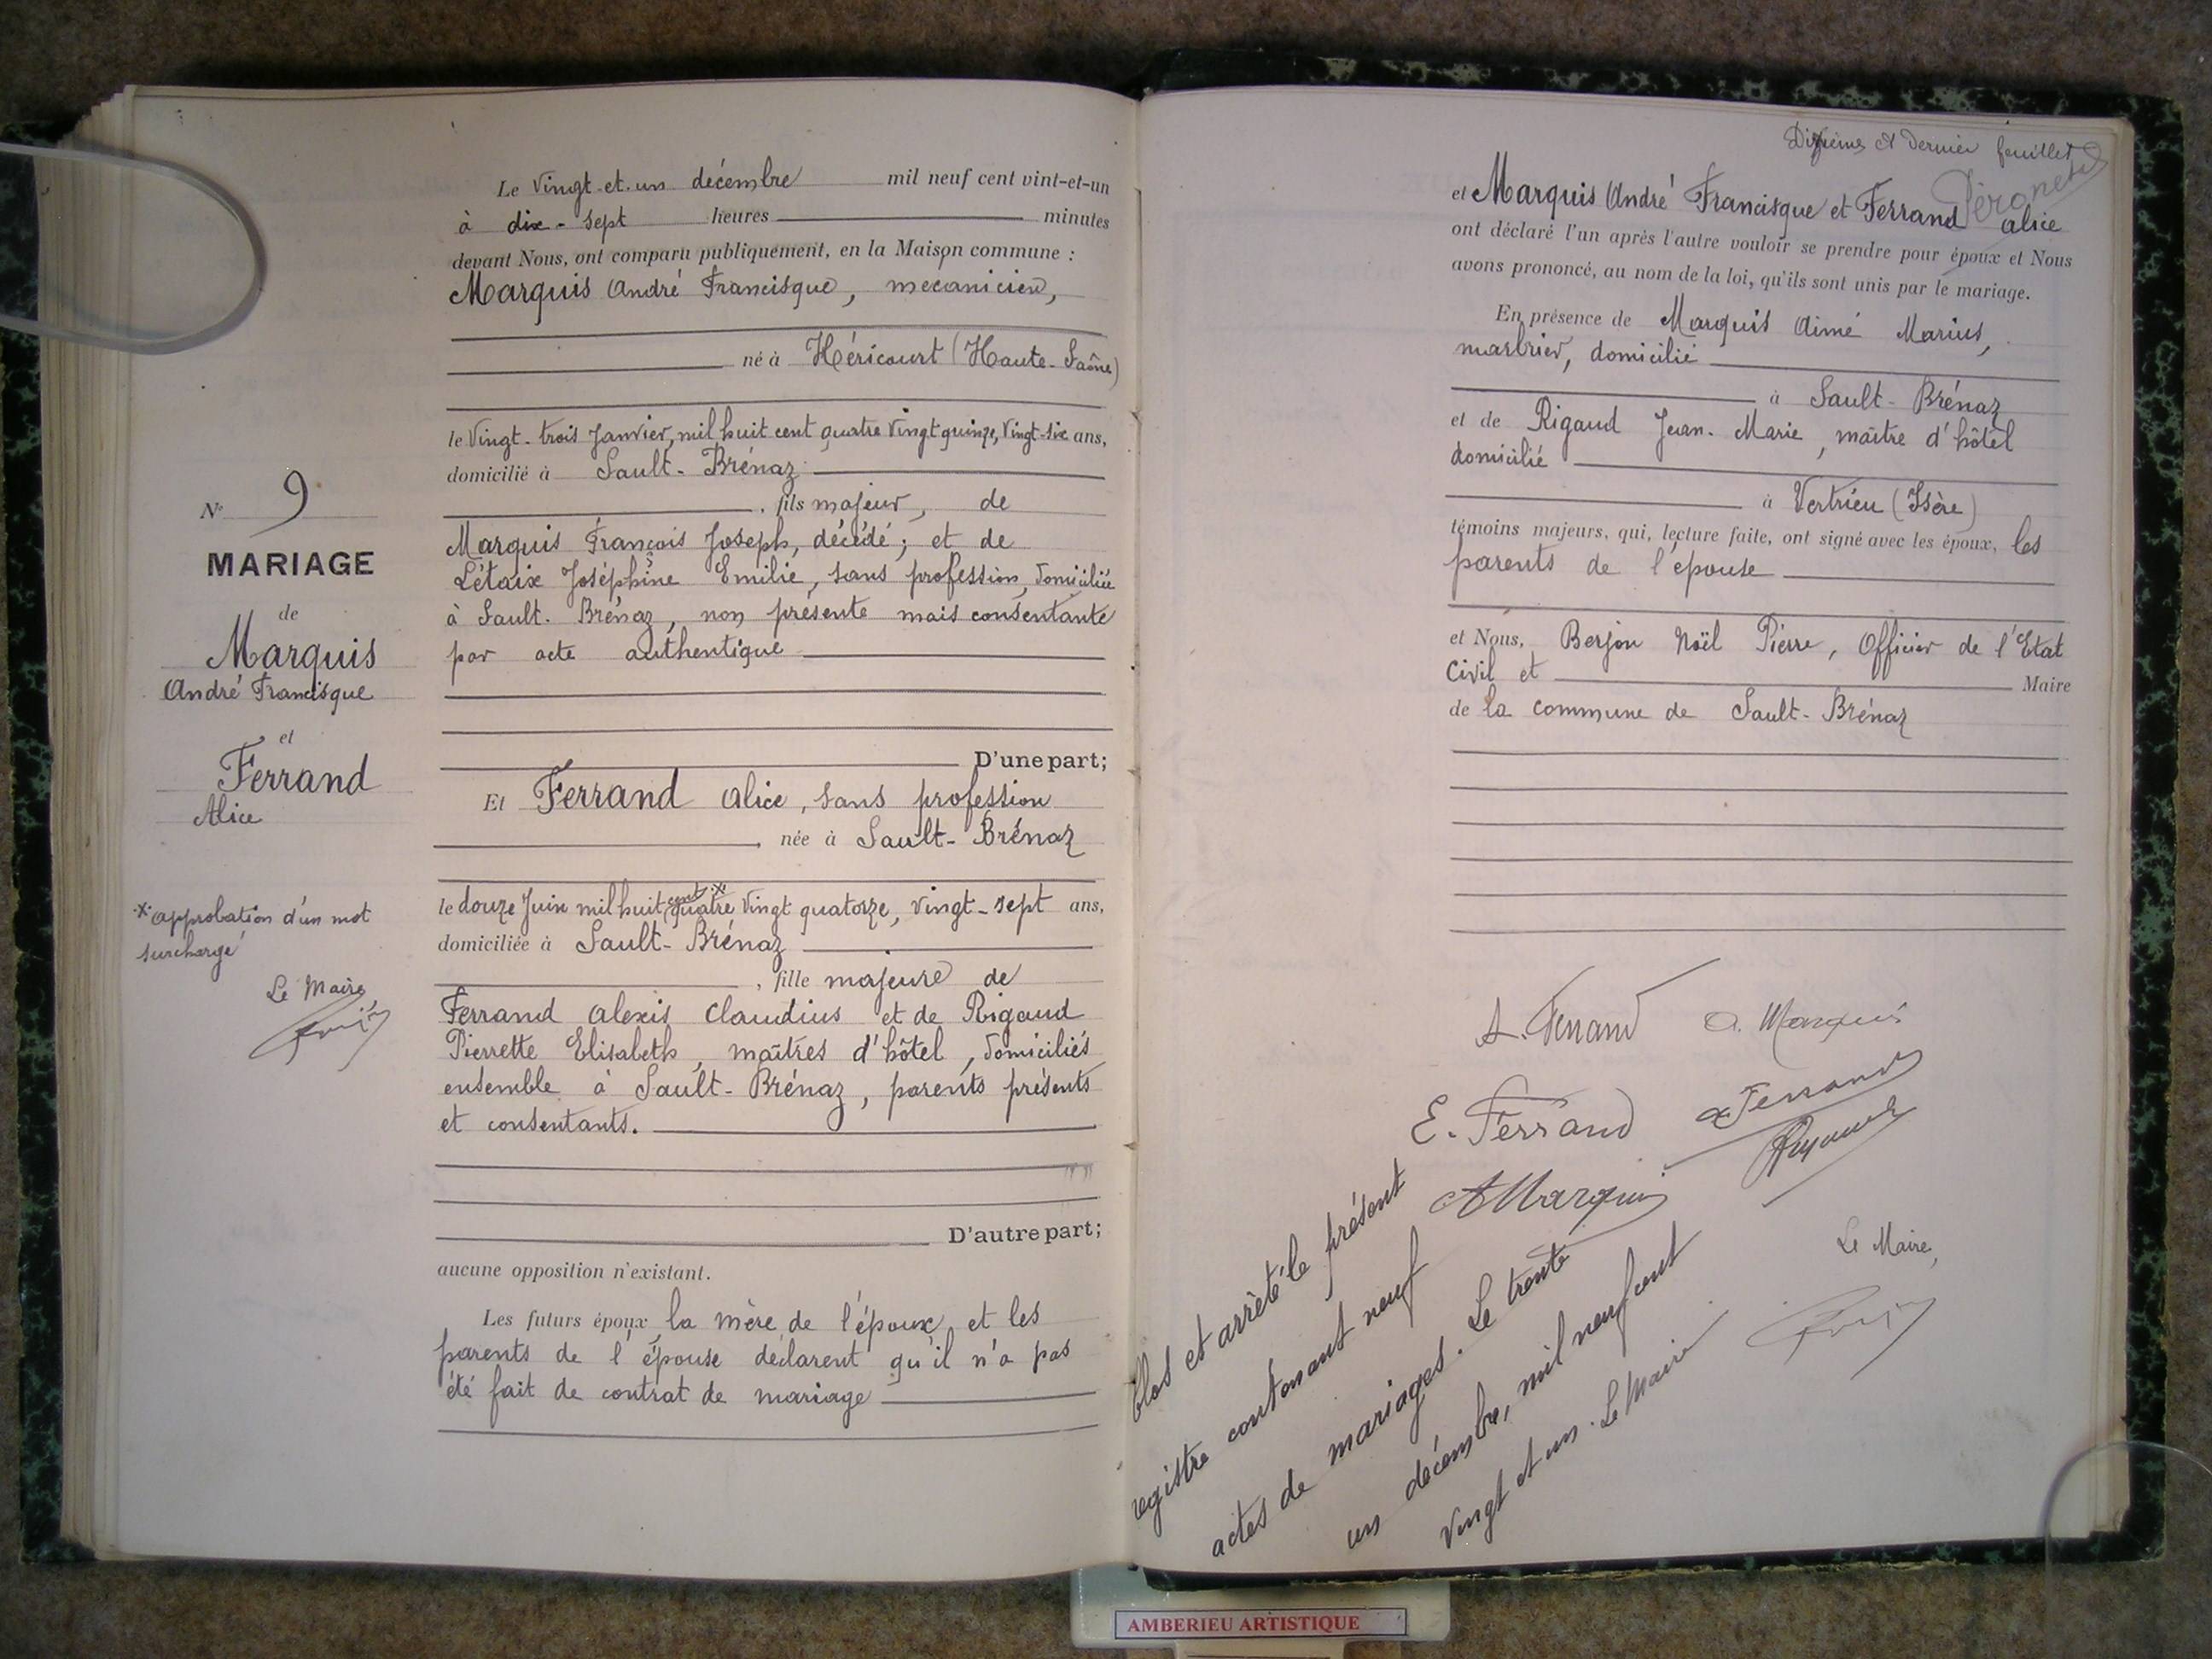 Le Vingt-et-un décembre mil neuf cent vint-et-un
à dix-sept heures minutes
devant Nous, ont comparu publiquement, en la Maison commune :
Marquis André Francisque, mecanicien,
né à Héricourt (Haute-Saône)
le Vingt-trois Janvier, mil huit cent quatre Vingt quinze, Vingt-six ans,
domicilié à Sault-Brénaz
, fils majeur, de
Marquis François Joseph, décédé ; et de
Létaix Joséphine Emilie, sans profession, domiciliée
à Sault-Brénaz, non présente mais consentante
par acte authentique
D'une part;
Et Ferrand Alice, sans profession
née à Sault-Brénaz
le douze Juin mil huit cent * quatre Vingt quatorze, vingt-sept ans,
domiciliée à Sault-Brénaz
, fille majeure de
Ferrand Alexis Claudius et de Rigaud
Pierrette Elisabeth, maîtres d'hôtel, domiciliés
ensemble à Sault-Brénaz, parents présents
et consentants.
D'autre part;
aucune opposition n'existant.
Les futurs époux, la mère de l'époux, et les
parents de l'épouse déclarent qu'il n'a pas
été fait de contrat de mariage
No 9
MARIAGE
de
Marquis
André Francisque
et
Ferrand
Alice
* approbation d'un mot
surchargé
Le Maire
Dixième et dernier feuillet
et Marquis André Francisque et Ferrand Alice
ont déclaré l'un après l'autre vouloir se prendre pour époux et Nous
avons prononcé, au nom de la loi, qu'ils sont unis par le mariage.
En présence de Marquis Aimé Marius,
marbrier, domicilié
à Sault-Brénaz
et de Rigaud Jean-Marie, maître d'hôtel
domicilié
à Vertrieu (Isère)
témoins majeurs, qui, lecture faite, ont signé avec les époux, les
parents de l'épouse
et Nous, Berjon Noël Pierre, Officier de l'Etat
Civil et Maire
de la commune de Sault-Brénaz
A. Ferrand A. Marquis
E. Ferrand A Ferrand
A Marquis
Le Maire,
Clos et arrêté le présent
registre contenant neuf
actes de mariages. Le trente
un décembre, mil neuf cent
vingt et un. Le Maire
AMBERIEU ARTISTIQUE